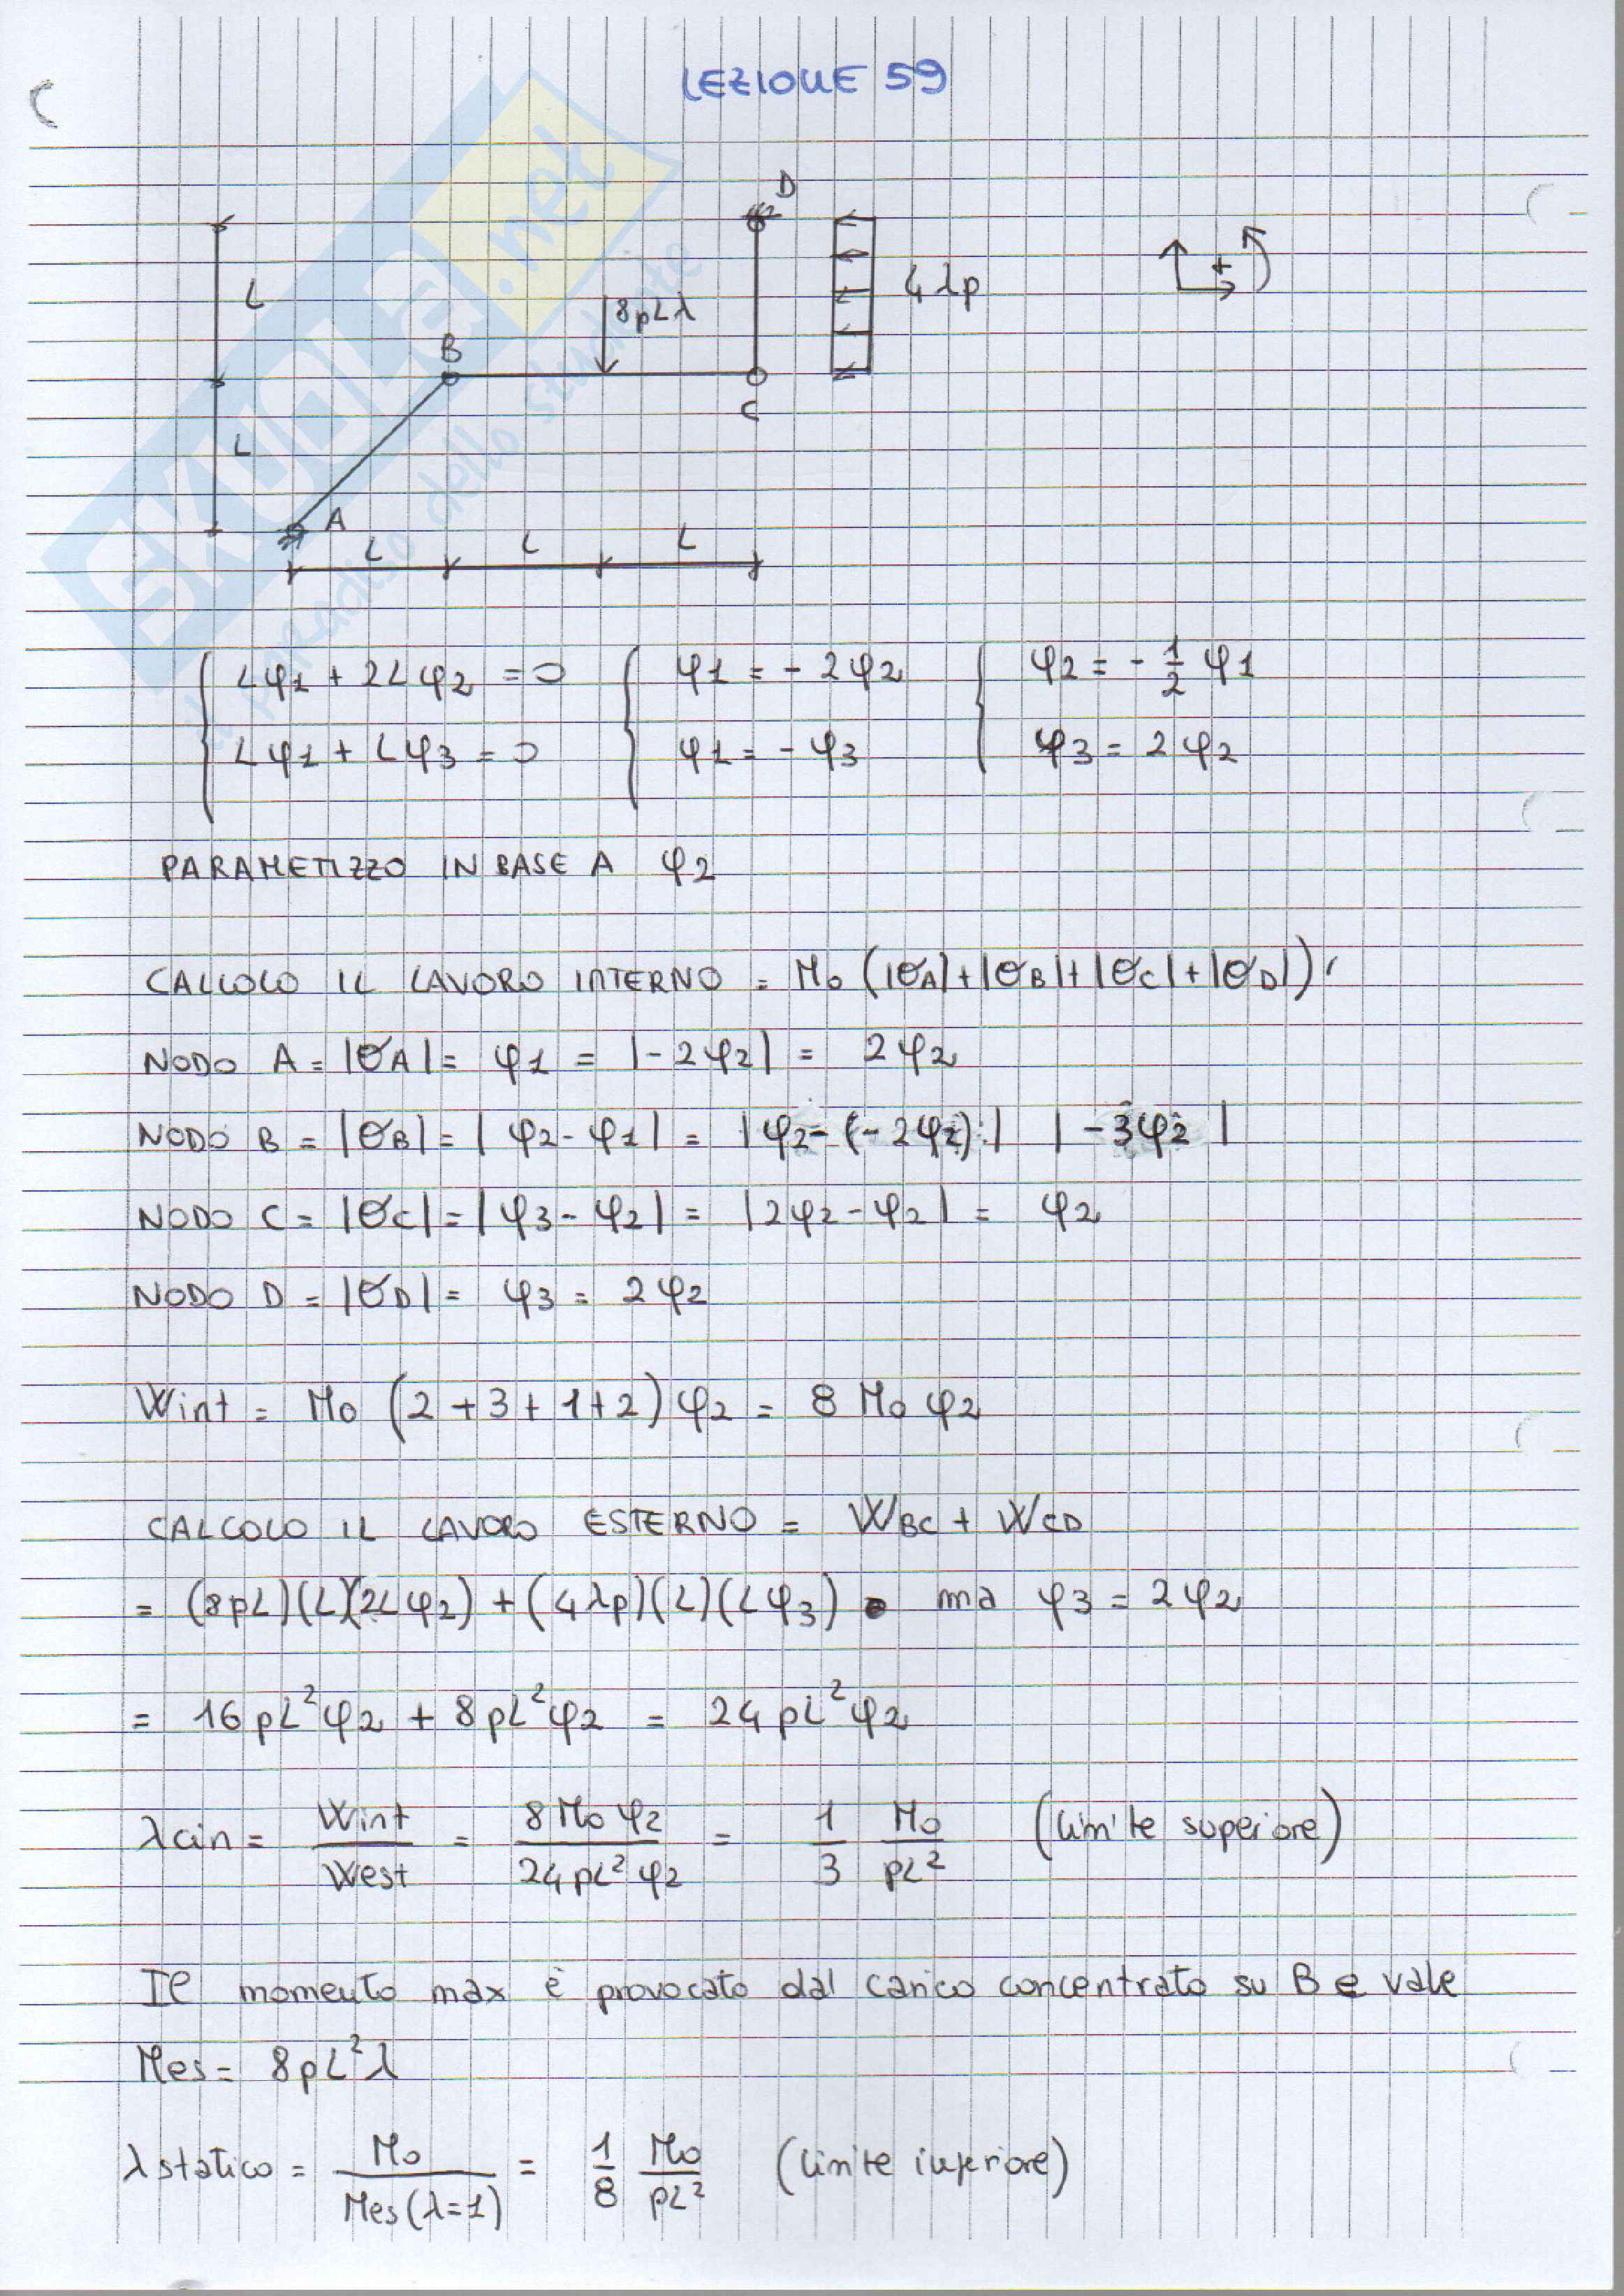 LEZIONE 59
D
L
8pLλ
4λp
+
B
C
L
A
L L L
Lφ1 + 2Lφ2 = 0 φ1 = - 2φ2 φ2 = - 1/2 φ1
Lφ1 + Lφ3 = 0 φ1 = - φ3 φ3 = 2φ2
PARAMETIZZO IN BASE A φ2
CALCOLO IL LAVORO INTERNO = Mo (|θA| + |θB| + |θC| + |θD|)
NODO A = |θA| = φ1 = |-2φ2| = 2φ2
NODO B = |θB| = |φ2 - φ1| = |φ2 - (-2φ2)| |-3φ2|
NODO C = |θC| = |φ3 - φ2| = |2φ2 - φ2| = φ2
NODO D = |θD| = φ3 = 2φ2
Wint = Mo (2 + 3 + 1 + 2) φ2 = 8 Mo φ2
CALCOLO IL LAVORO ESTERNO = WBC + WCD
= (8pL)(L)(2Lφ2) + (4λp)(L)(Lφ3) ma φ3 = 2φ2
= 16pL²φ2 + 8pL²φ2 = 24pL²φ2
λcin = Wint/West = 8Moφ2/24pL²φ2 = 1/3 Mo/pL² (limite superiore)
Il momento max è provocato dal carico concentrato su B e vale
Mes = 8pL²λ
λstatico = Mo/Mes(λ=1) = 1/8 Mo/pL² (limite inferiore)
SKUOLA.net
il paradiso dello studente